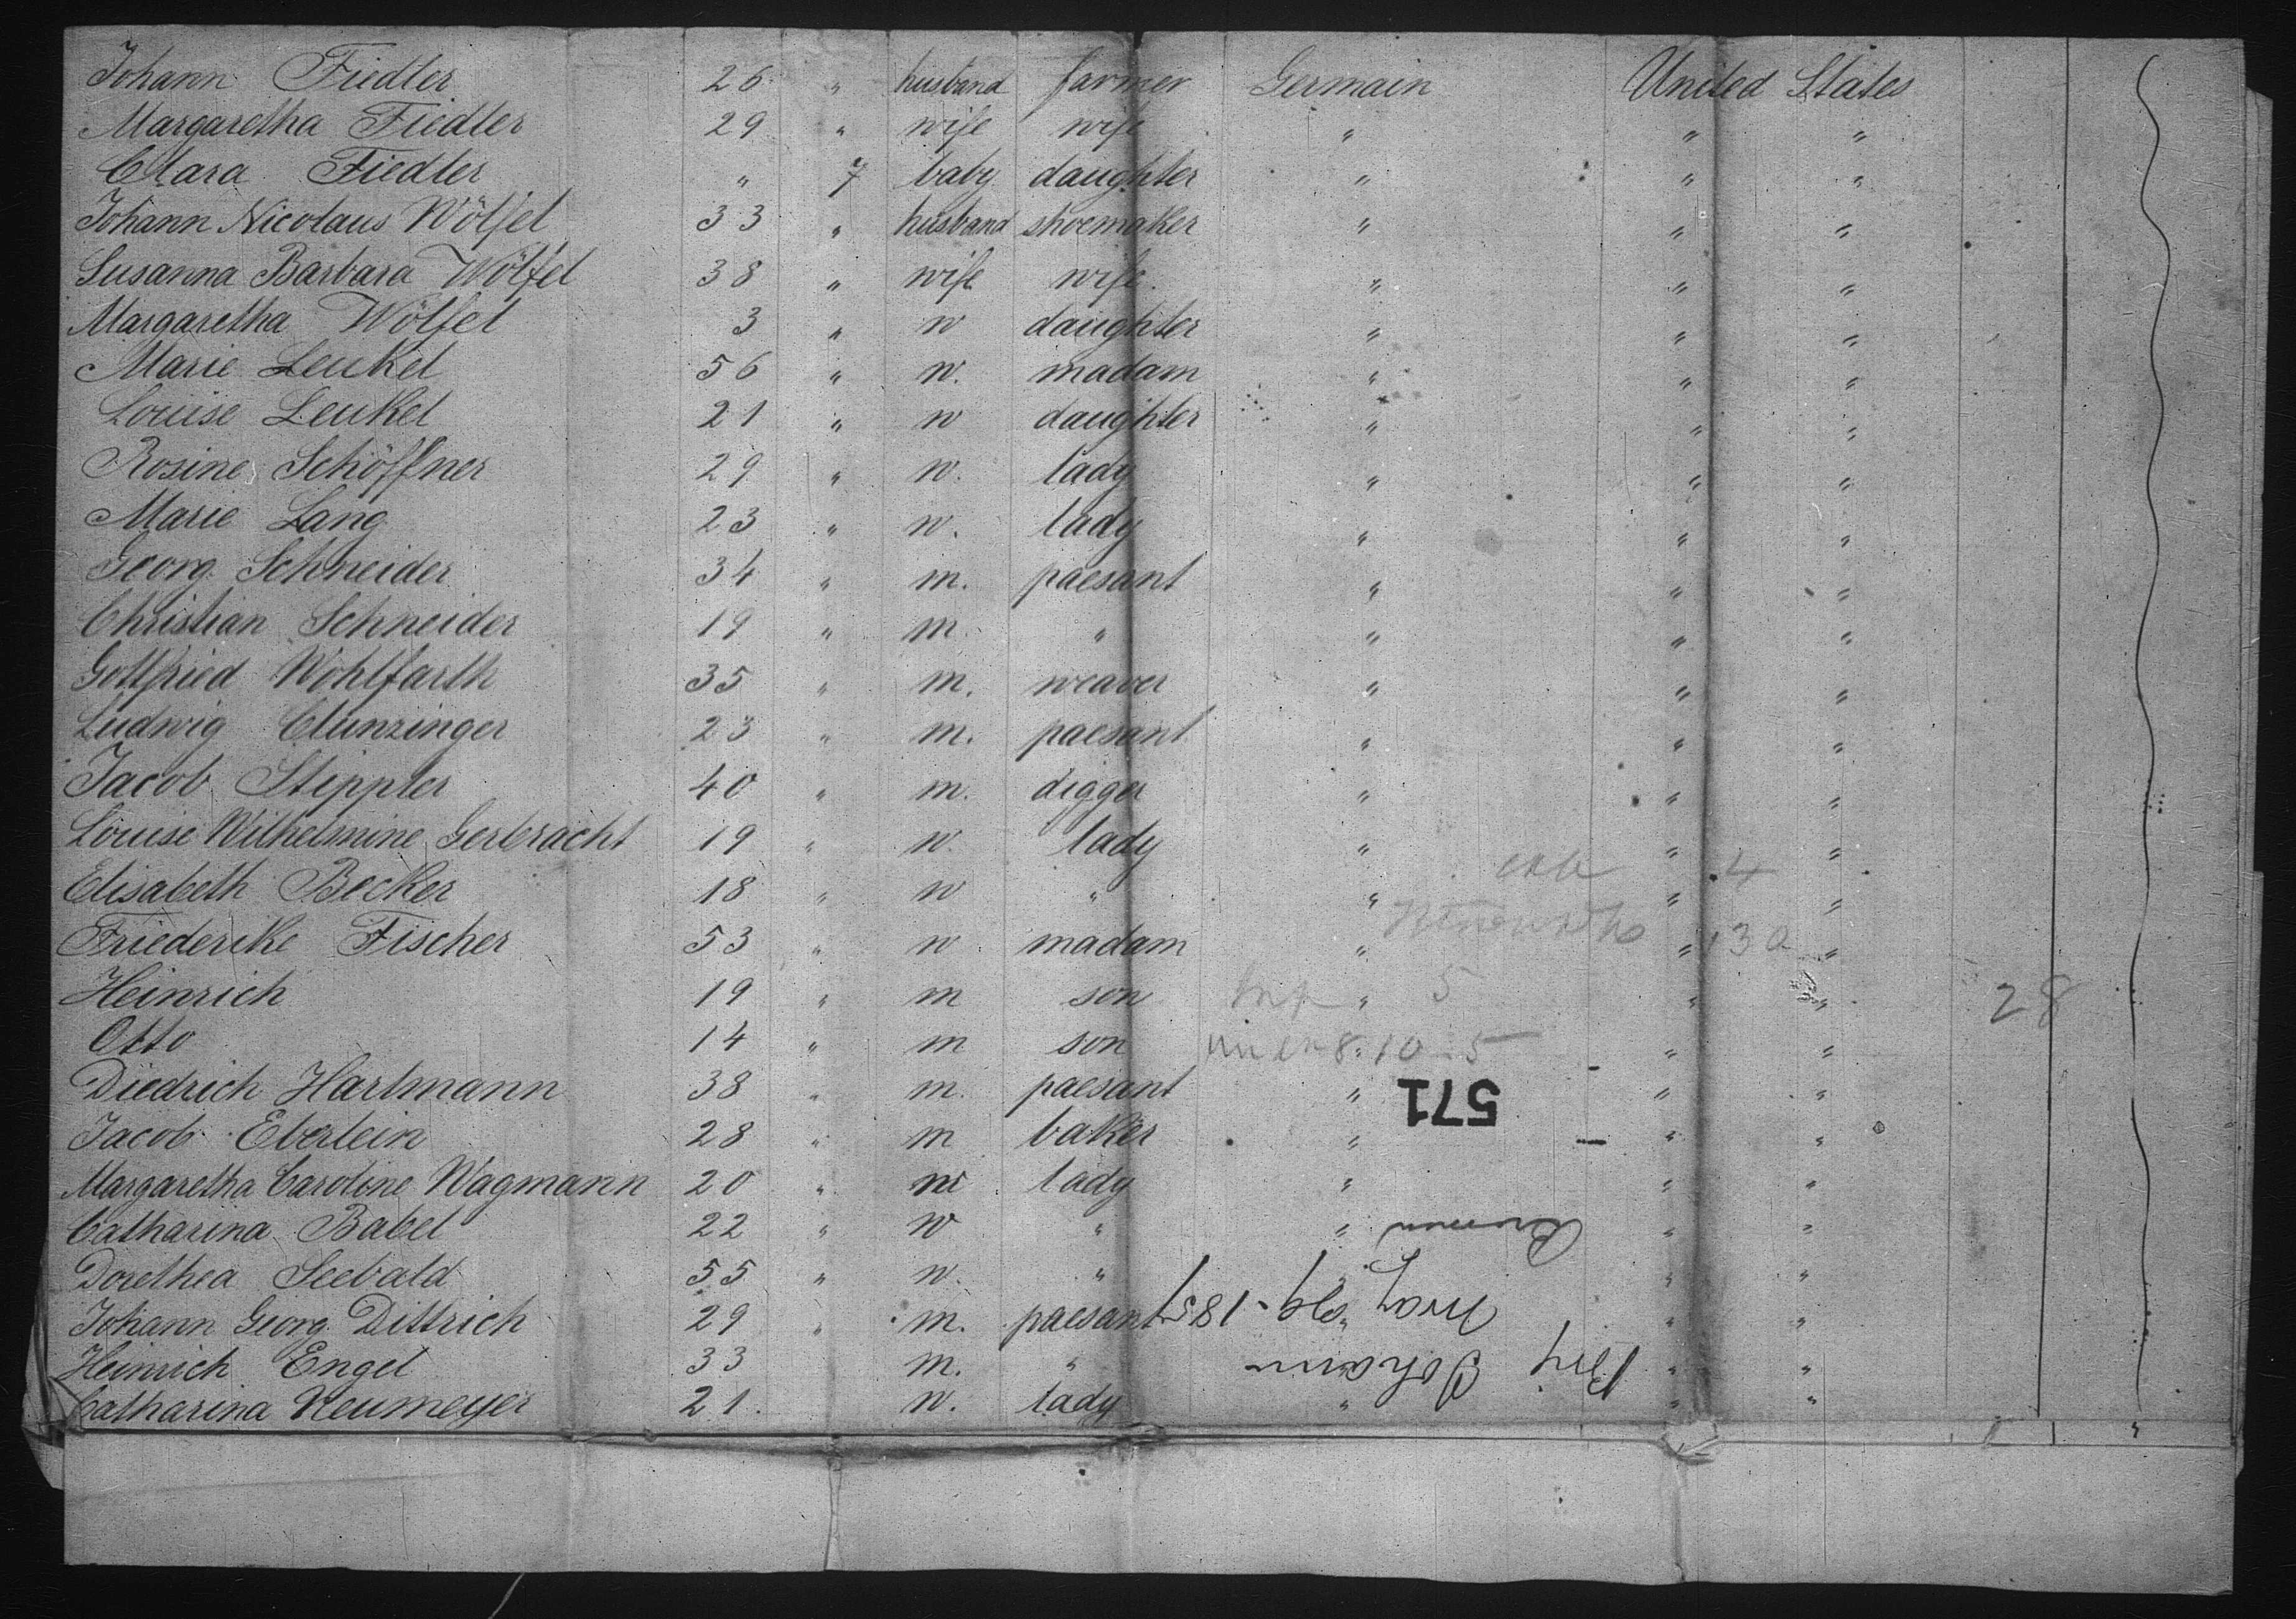 Johann Fiedler 26 " husband farmer Germain United States
Margaretha Fiedler 29 " wife wife " " "
Clara Fiedler " 7 baby daughter " " "
Johann Nicolaus Wölfel 33 " husband shoemaker " " "
Susanna Barbara Wölfel 38 " wife wife " " "
Margaretha Wölfel 3 " w daughter " " "
Marie Leukel 56 " w. madam " " "
Louise Leukel 21 " w daughter " " "
Rosine Schöffner 29 " w. lady " " "
Marie Lang 23 " w. lady " " "
Georg Schneider 34 " m. paesant " " "
Christian Schneider 19 " m " " " "
Gottfried Wohlfarth 35 " m. weaver " " "
Ludwig Clunzinger 23 " m. paesant " " "
Jacob Steppler 40 " m. digger " " "
Louise Wilhelmine Gerbracht 19 " w. lady " " "
Elisabeth Becker 18 " w " " " " 4
Friederike Fischer 53 " w madam " " 130 "
Heinrich 19 " m son " 5 " " 28
Otto 14 " m son 8 " 10 5 " "
Diedrich Hartmann 38 " m. paesant " " "
571
Jacob Eberlein 28 " m baker " " "
Margaretha Caroline Wagmann 20 " w lady " " "
Catharina Babel 22 " w " " " "
Dorethea Seebald 55 " w. " " " "
Johann Georg Dittrich 29 " m. paesant " " "
Heinrich Engel 33 m. " " "
Catharina Neumeyer 21. w. lady " " "
Brig Johann
May 29-1857
Bremen